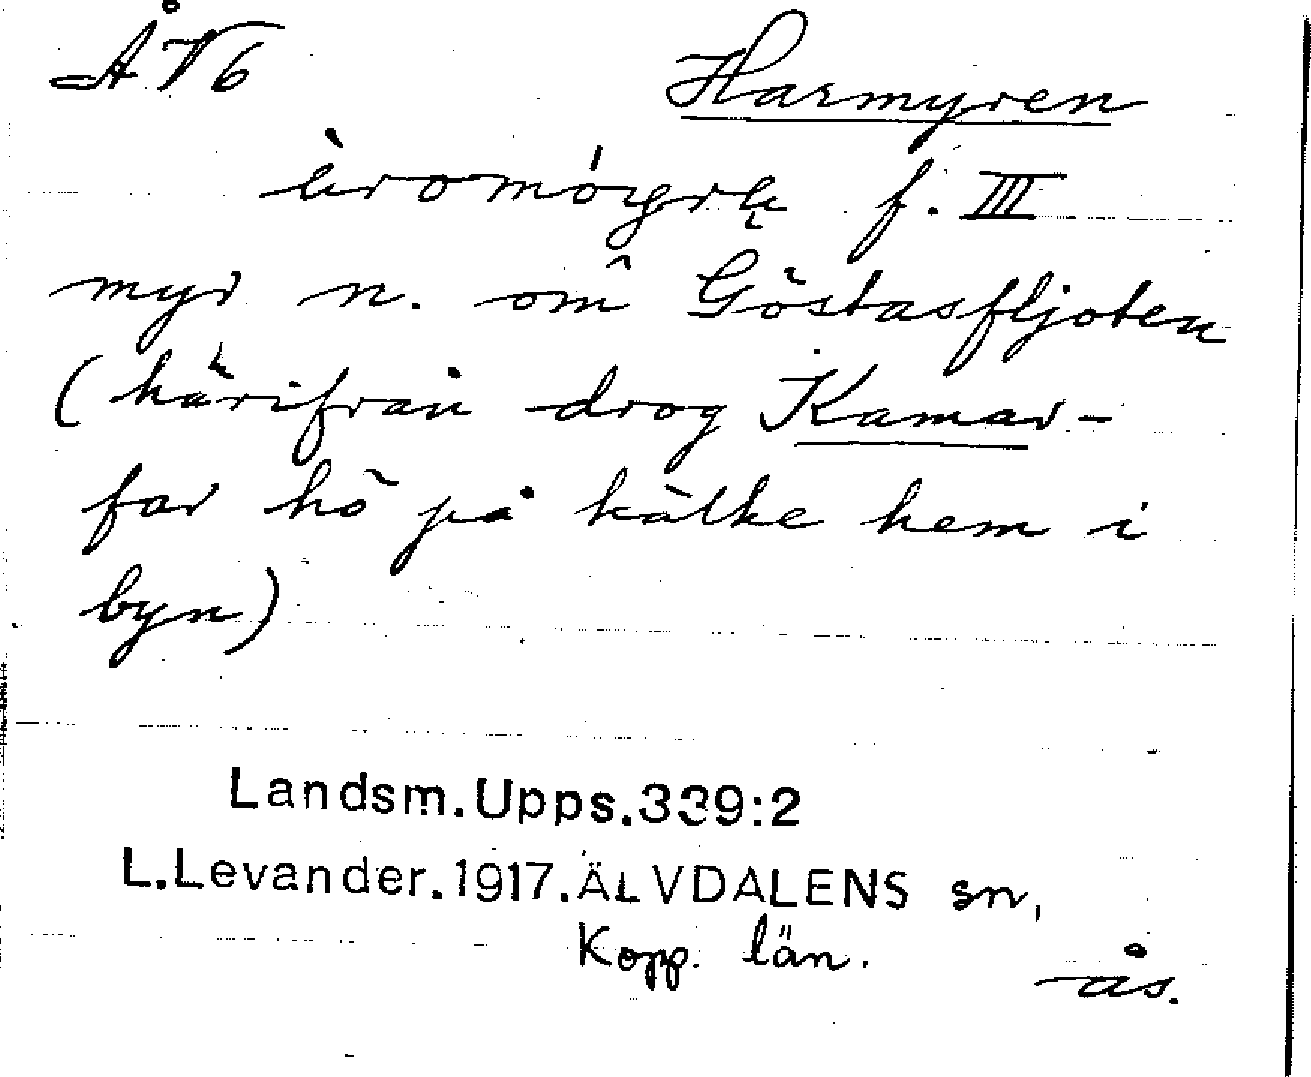 ÅV6 Harmyren
èromóyrę f. III
myr n. om Göstasfljoten
(härifrån drog Kamar-
far hö på kälke hem i
byn)
Landsm.Upps.339:2
L.Levander.1917.ÄLVDALENS sn,
Kopp. län.
ås.